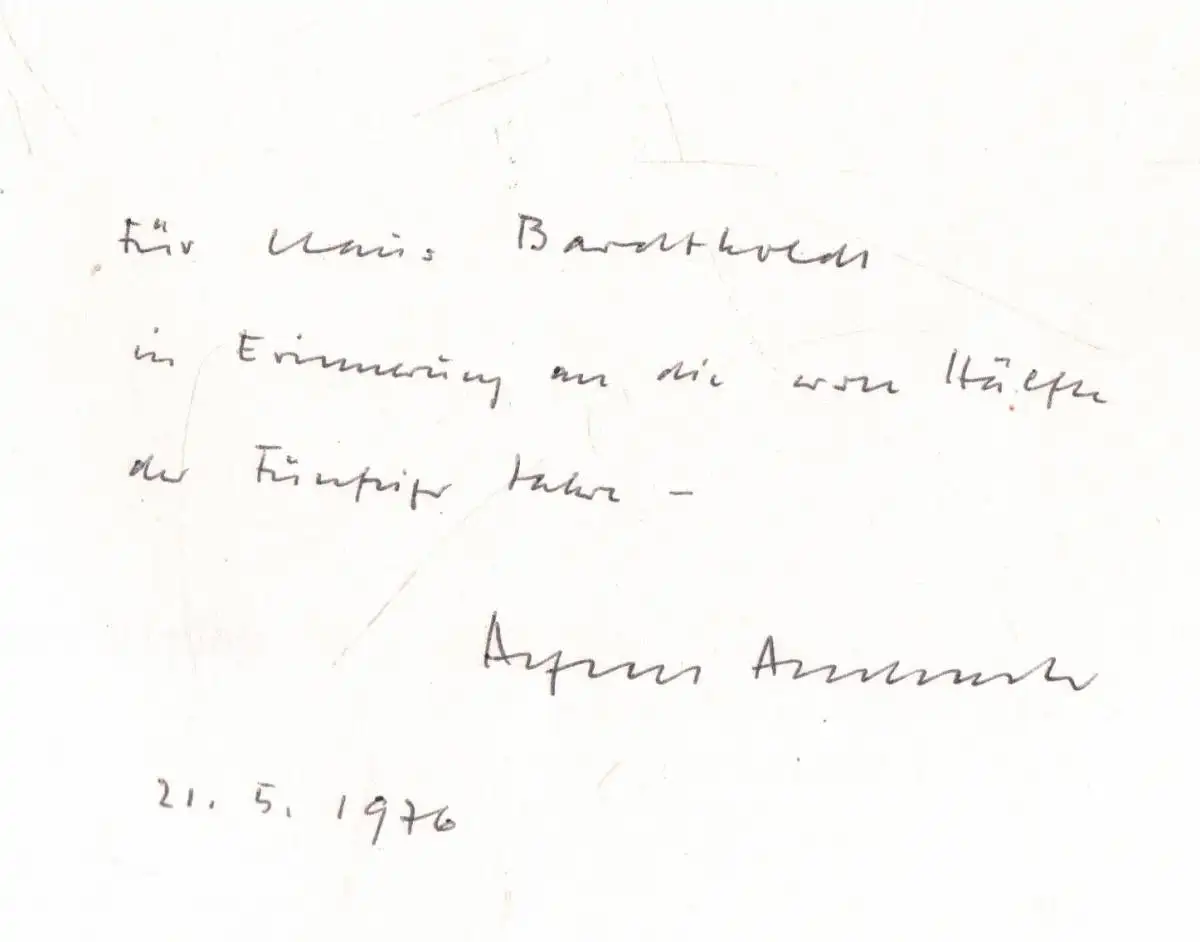 Für Klaus Bardtholdt
in Erinnerung an die erste Hälfte
der Fünfziger Jahre –
Alfred Andersch
21. 5. 1976